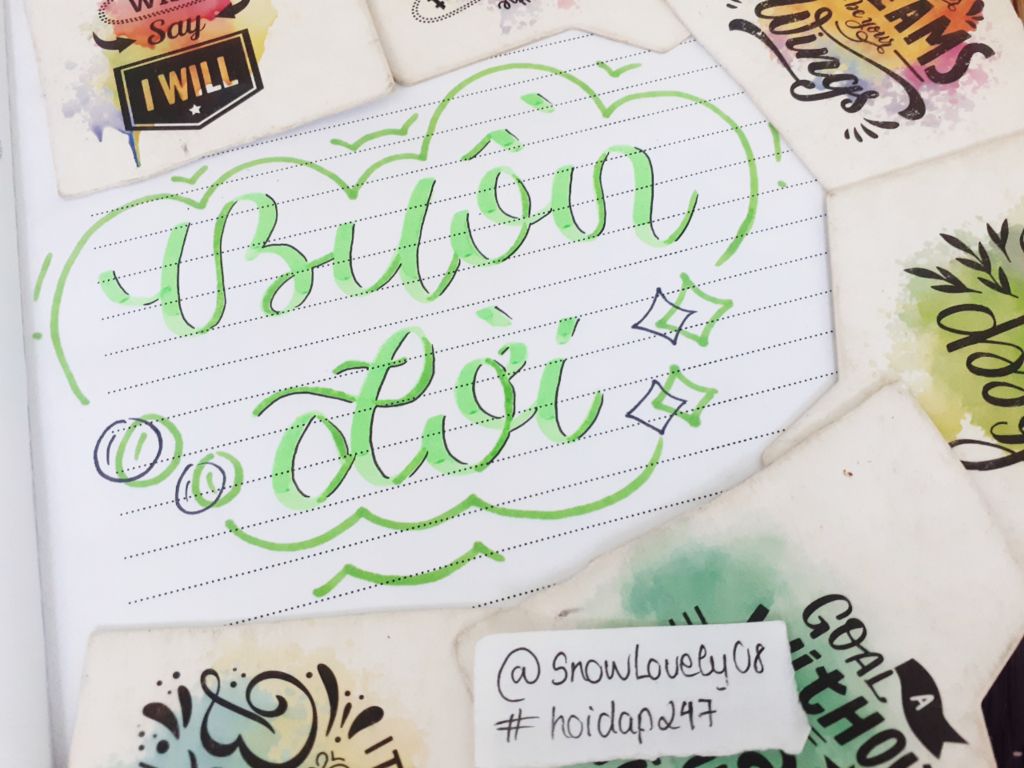 Say
I WILL
the
be your
Wings
Buồn
đời
GOAL
A
@SnowLovely08
#hoidap247